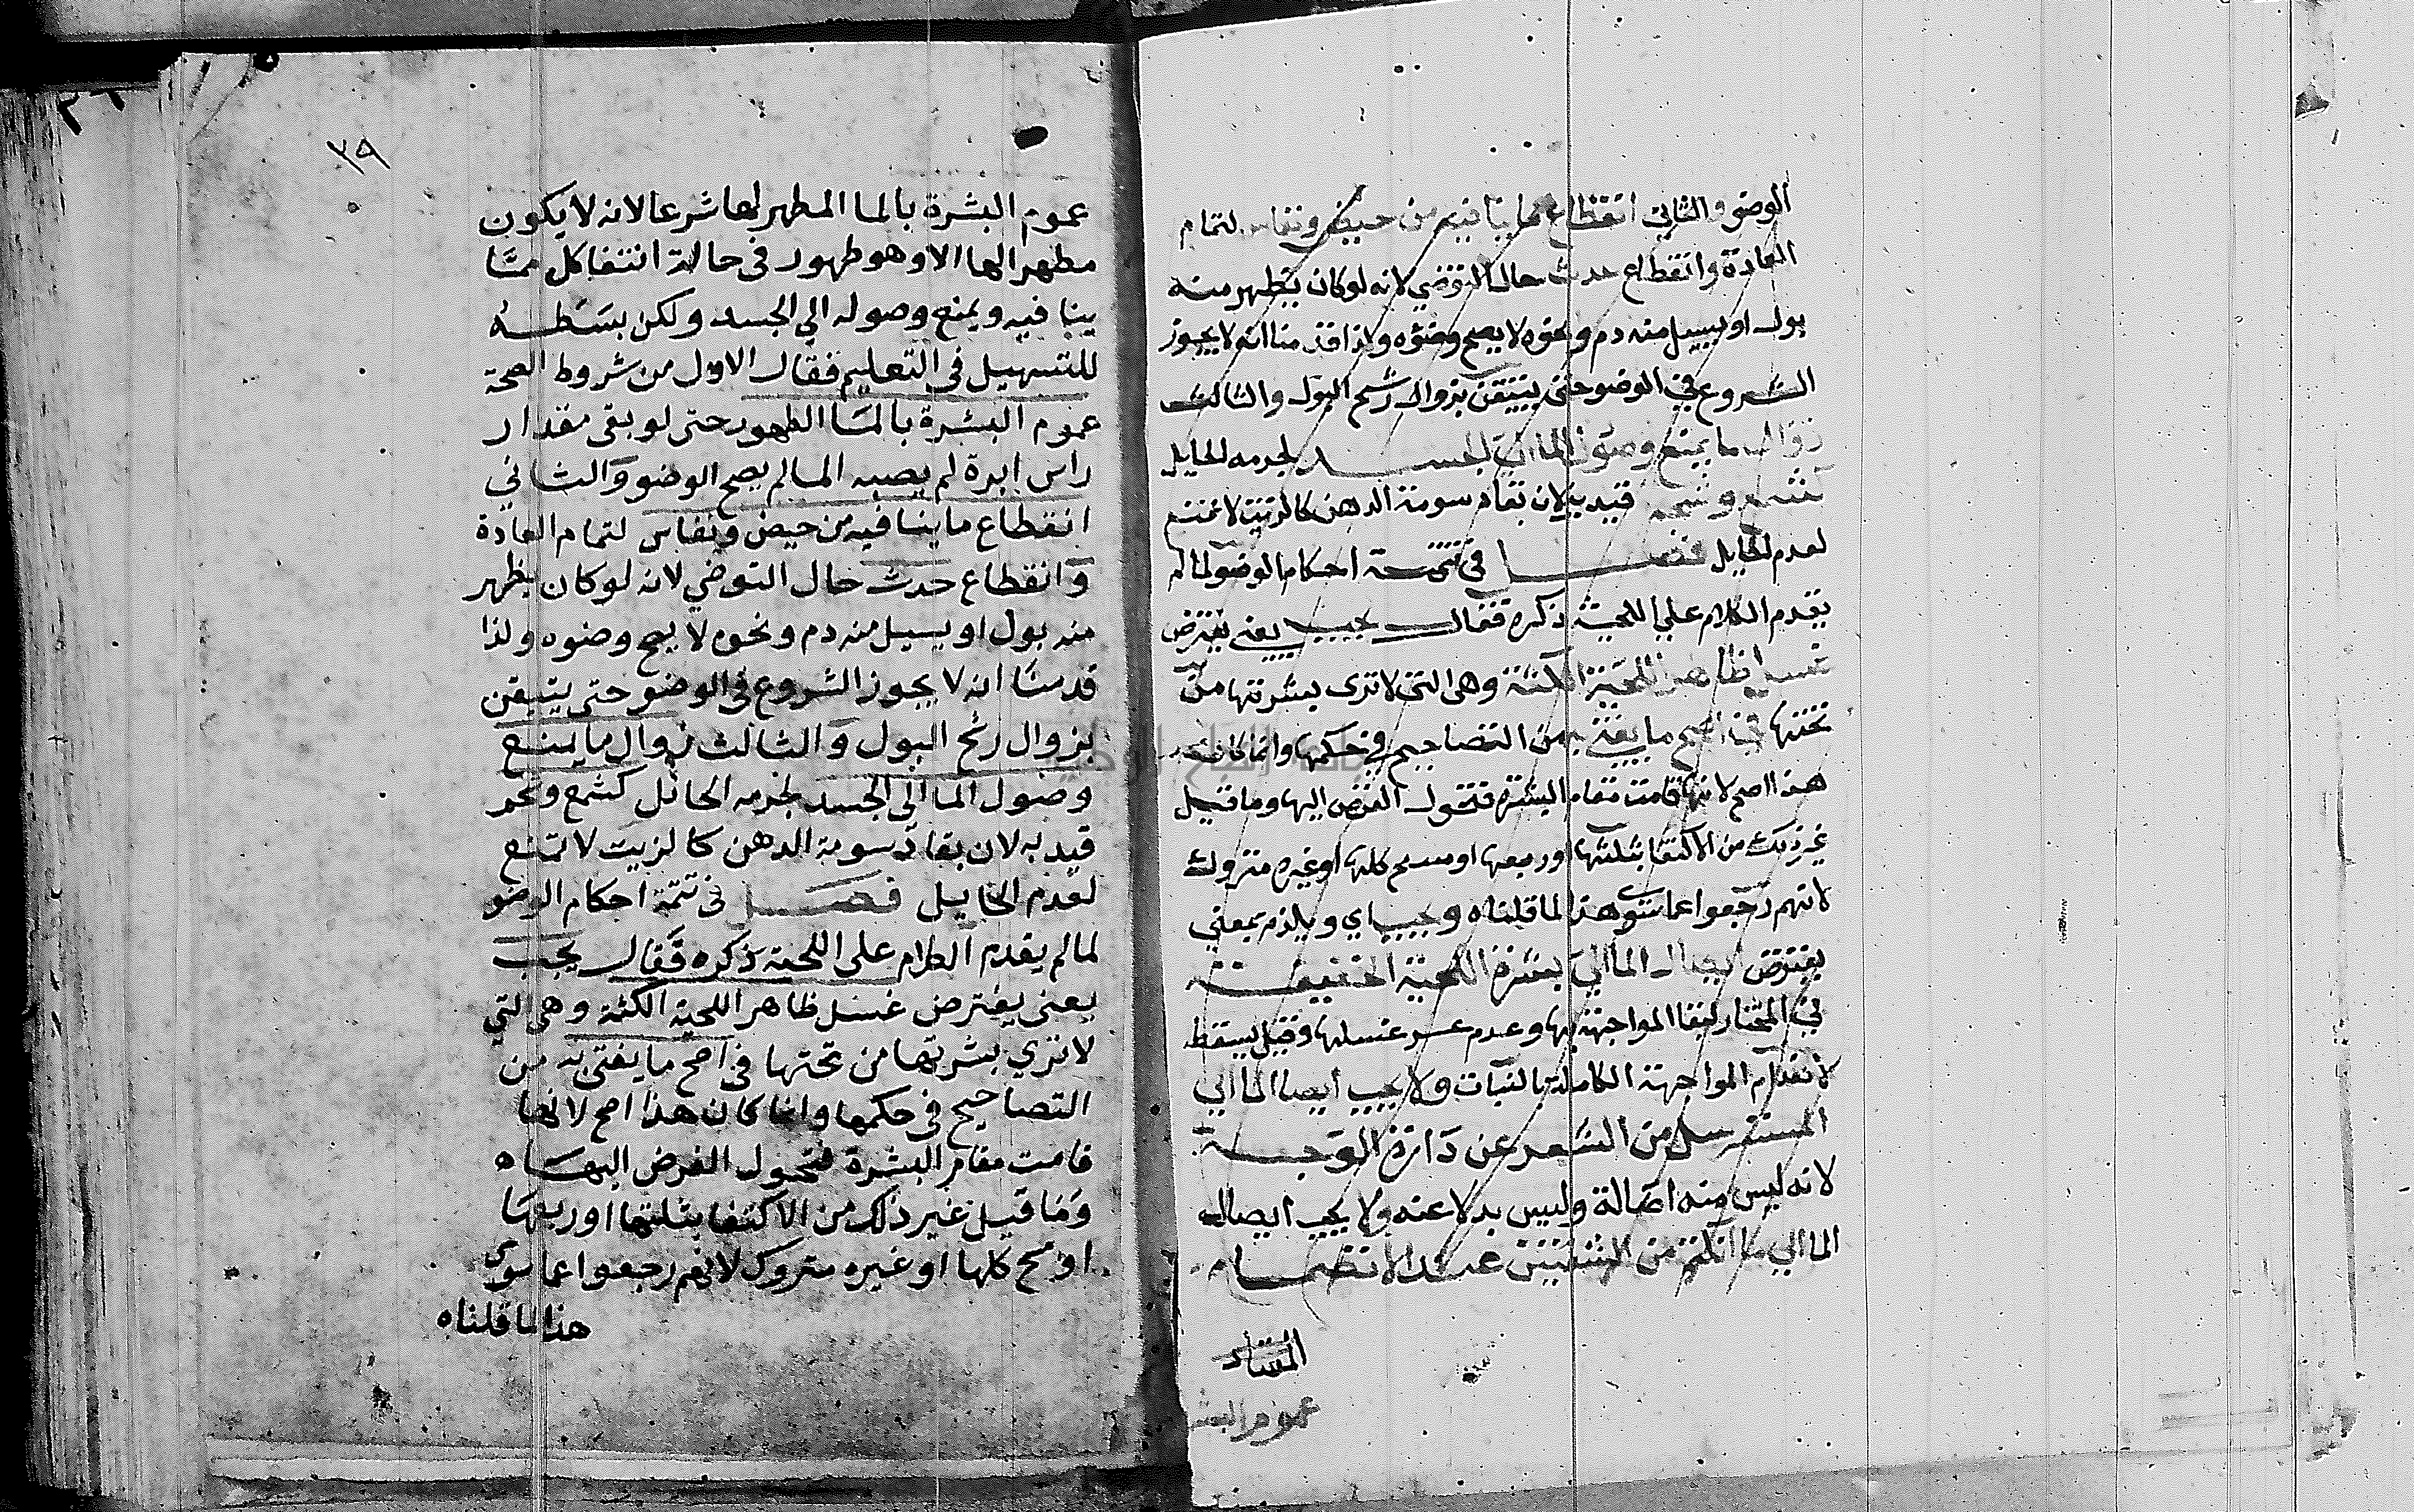 الوضو والثاني انقطاع ما ينافيه من حيض ونفاس لتمام
العادة وانقطاع حدث حال التوضي لانه لوكان يظهر منه
بول او يسيل منه دم ونحوه لا يصح وضوه ولذا قدمنا انه لا يجوز
الشروع في الوضو حتى يتيقن بزوال رشح البول والثالث
زوال ما يمنع وصول الما الي الجسد لجرمه الحايل
كشمع وشحم قيد به لان بقا دسومة الدهن كالزيت لا تمنع
لعدم الحايل فصل في تتمة احكام الوضو لما لم
يقدم الكلام علي اللحية ذكره فقال يجب يعني يفترض
غسل ظاهر اللحية الكثة وهي التي لا ترى بشرتها من
تحتها في اصح ما يفتى به من التصاحيح في حكمها وانما كان
هذا اصح لانها قامت مقام البشرة فتحول الفرض اليها وما قيل
غير ذلك من الاكتفا بثلثها او ربعها او مسح كلها او غيره متروك
لانهم رجعوا عما سوى هذا لما قلناه ويجب اي ويلزم بمعني
يفترض ايصال الما الي بشرة اللحية الخفيفة
في المختار لبقا المواجهة بها وعدم عسر غسلها وقيل يسقط
لانعدام المواجهة الكاملة بالنبات ولا يجب ايصا الما الي
المسترسل من الشعر عن دارة الوجه
لانه ليس منه اصالة وليس بدلا عنه ولا يجب ايصال
الما الي ما انكتم من الشفتين عند الانضمام
عموم البشر
٣٩
عموم البشرة بالما المطهر لها شرعا لانه لا يكون
مطهر الها الا وهو طهور في حالة انتفا كل ممّا
ينافيه ويمنع وصوله الي الجسد ولكن بسَطه
للتسهيل في التعليم فقال الاول من شروط الصحة
عموم البشرة بالمَا الطهور حتى لو بقى مقدار
راس ابرة لم يصبه الما لم يصح الوضو وَالثاني
انقطاع ما ينافيه من حيض ونفاس لتمام العادة
وَانقطاع حدث حال التوضي لانه لو كان يظهر
منه بول او يسيل منه دم ونحوه لا يصح وضوه ولذا
قدمنَا انه لا يجوز الشروع في الوضو حتى يتيقن
بزوال رشح البول وَالثالث زوال ما يمنع
وصول الما الى الجسد لجرمه الحائل كشمع وشحم
قيد به لان بقا دسومة الدهن كالزيت لا تمنع
لعدم الحايل فصل في تتمة احكام الوضو
لما لم يقدم الكلام على اللحية ذكره فقال يجب
يعني يفترض غسل ظاهر اللحية الكثة وهي التي
لا تري بشرتها من تحتها في اصح ما يفتى به من
التصاحيح في حكمها وانما كان هذا اصح لانها
قامت مقام البشرة فتحول الفرض اليهَاه
وَمَا قيل غير ذلك من الاكتفا بثلثها او ربعهَا
او مسح كلها او غيره متروك لانهم رجعوا عما سوى
هذا لما قلناه